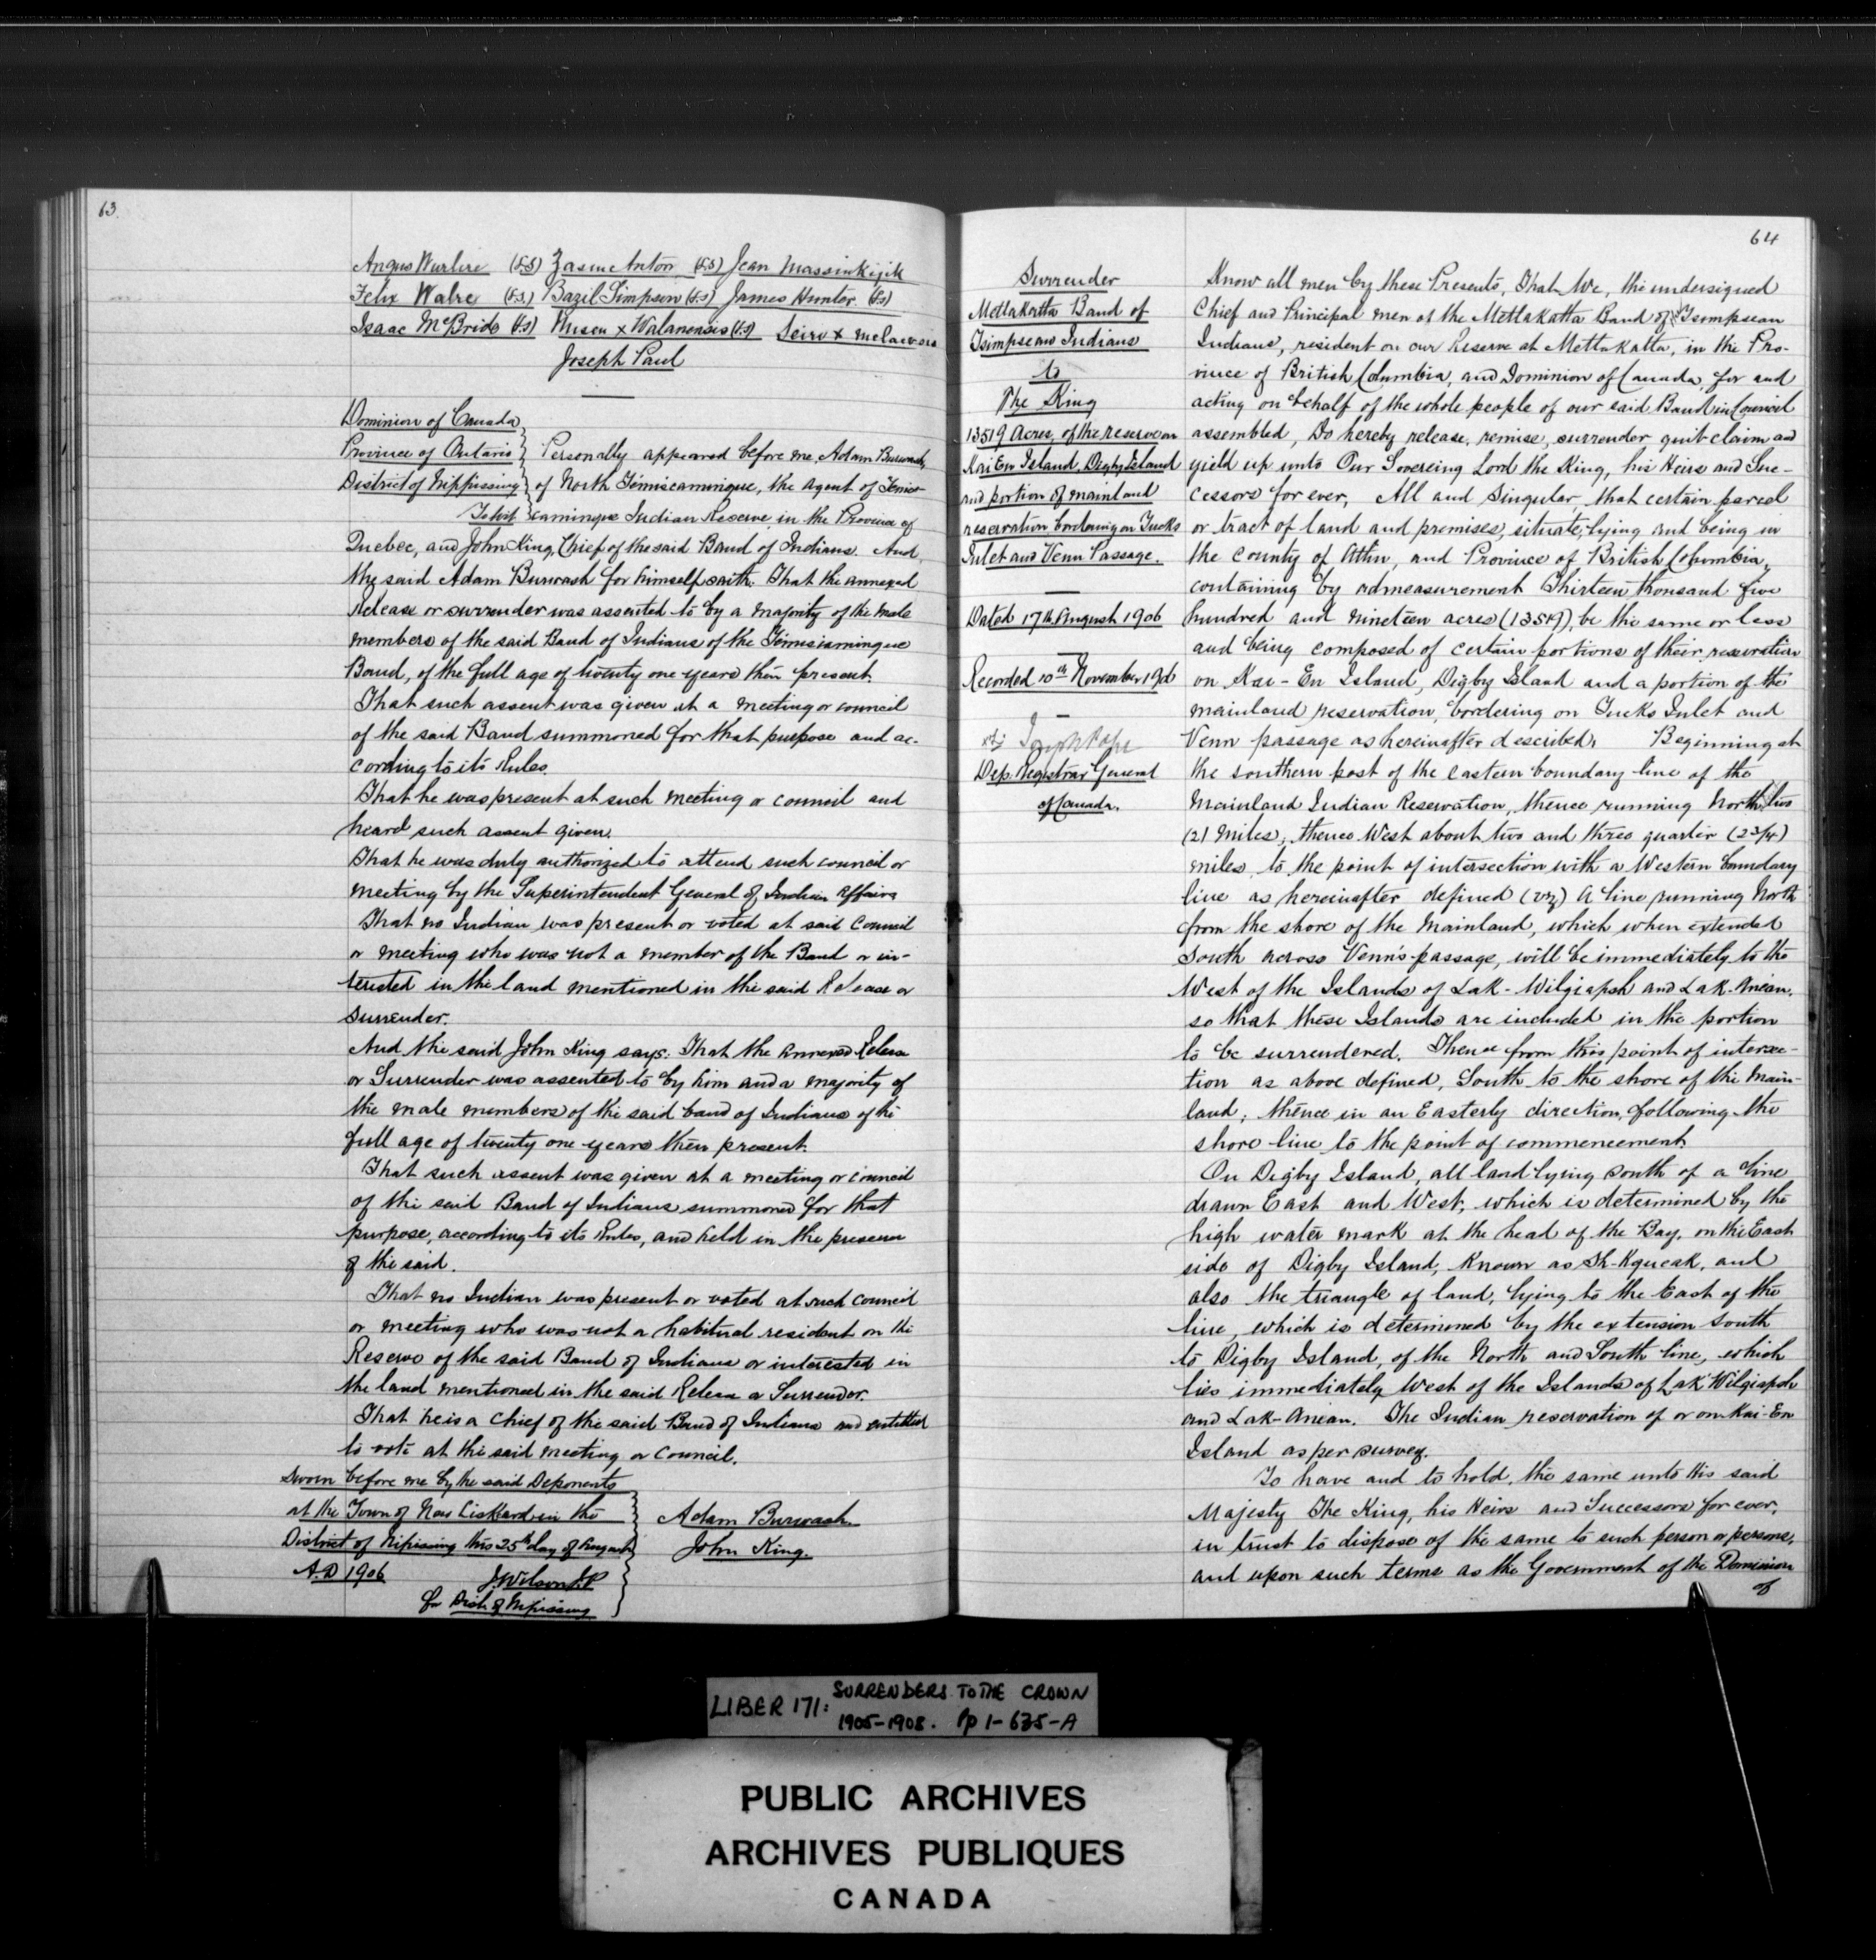 63
Angus Wurlire (LS) Zasme Anton (LS) Jean Massinkijik
Felix Walre (LS) Bazil Simpson (LS) James Hunter (LS)
Isaac McBride (LS) x Walanensis (LS) x
Joseph Paul
Dominion of Canada
Province of Ontario
District of Nippissing
To Wit
Personally appeared before me, Adam Burwash,
of North Temiscamingue, the Agent of Temis-
camingue Indian Reserve in the Province of
Quebec, and John King, Chief of the said Band of Indians. And
the said Adam Burwash for himself saith: That the annexed
Release or surrender was assented to by a majority of the male
members of the said Band of Indians of the Temiscamingue
Band, of the full age of twenty one years then present.
That such assent was given at a meeting or council
of the said Band summoned for that purpose and ac-
cording to its Rules.
That he was present at such meeting or council and
heard such assent given.
That he was duly authorized to attend such council or
meeting by the Superintendent General of Indian Affairs
That no Indian was present or voted at said council
or meeting who was not a member of the Band or in-
terested in the land mentioned in the said Release or
Surrender.
And the said John King says: That the annexed Release
or Surrender was assented to by him and a majority of
the male members of the said band of Indians of the
full age of twenty one years then present.
That such assent was given at a meeting or council
of the said Band of Indians summoned for that
purpose, according to its Rules, and held in the presence
of the said.
That no Indian was present or voted at such council
or meeting who was not a habitual resident on the
Reserve of the said Band of Indians or interested in
the land mentioned in the said Release or Surrender.
That he is a Chief of the said Band of Indians and entitled
to vote at the said meeting or council.
Sworn before me by the said Deponents
at the Town of New Liskeard in the
District of Nipissing this 25th day of August
A.D 1906
J. Wilson J.P
for Dist of Nipissing
Adam Burwash.
John King.
64
Surrender
Metlakatta Band of
Tsimpsean Indians
to
The King
13519 Acres, of the reserve on
Kai En Island, Digby Island
and portion of mainland
reservation bordering on Tucks
Inlet and Venn Passage.
Dated 17th August 1906
Recorded 10th November 1906
Joseph Pope
Dep. Registrar General
of Canada.
Know all men by these Presents, That We, the undersigned
Chief and Principal men of the Metlakatta Band of Tsimpsean
Indians, resident on our Reserve at Metlakatta, in the Pro-
vince of British Columbia, and Dominion of Canada, for and
acting on behalf of the whole people of our said Band in Council
assembled, Do hereby release, remise, surrender quit claim and
yield up unto Our Sovereing Lord the King, his Heirs and Suc-
cessors for ever, All and Singular, that certain parcel
or tract of land and premises, situate, lying and being in
the County of Atlin, and Province of British Columbia,
containing by admeasurement Thirteen thousand five
hundred and nineteen acres (13519), be the same or less
and being composed of certain portions of their reservation
on Kai-En Island, Digby Island and a portion of the
mainland reservation, bordering on Tucks Inlet and
Venn passage as hereinafter described, Beginning at
the southern post of the eastern boundary line of the
Mainland Indian Reservation, thence running North, two
(2) miles; thence West about two and three quarter (2 3/4)
miles to the point of intersection with a Western boundary
line as hereinafter defined (viz) A line running North
from the shore of the Mainland, which when extended
South across Venn's passage, will be immediately to the
West of the Islands of Lak-Wilgiapsh and Lak-Anean,
so that these Islands are included in the portion
to be surrendered. Thence from this point of intersec-
tion as above defined, South to the shore of the Main-
land; thence in an Easterly direction, following the
shore line to the point of commencement.
On Digby Island, all land lying south of a line
drawn East and West, which is determined by the
high water mark at the head of the Bay, on the East
side of Digby Island, known as Sh-Kgueak, and
also the triangle of land, lying to the East of the
line, which is determined by the extension South
to Digby Island, of the North and South line, which
lies immediately West of the Islands of Lak Wilgiapsh
and Lak-Anean. The Indian reservation of or on Kai-En
Island as per survey.
To have and to hold, the same unto His said
Majesty The King, his Heirs and Successors for ever,
in trust to dispose of the same to such person or persons,
and upon such terms as the Government of the Dominion
of
LIBER 171: SURRENDERS TO THE CROWN
1905-1908. Pp 1-635-A
PUBLIC ARCHIVES
ARCHIVES PUBLIQUES
CANADA